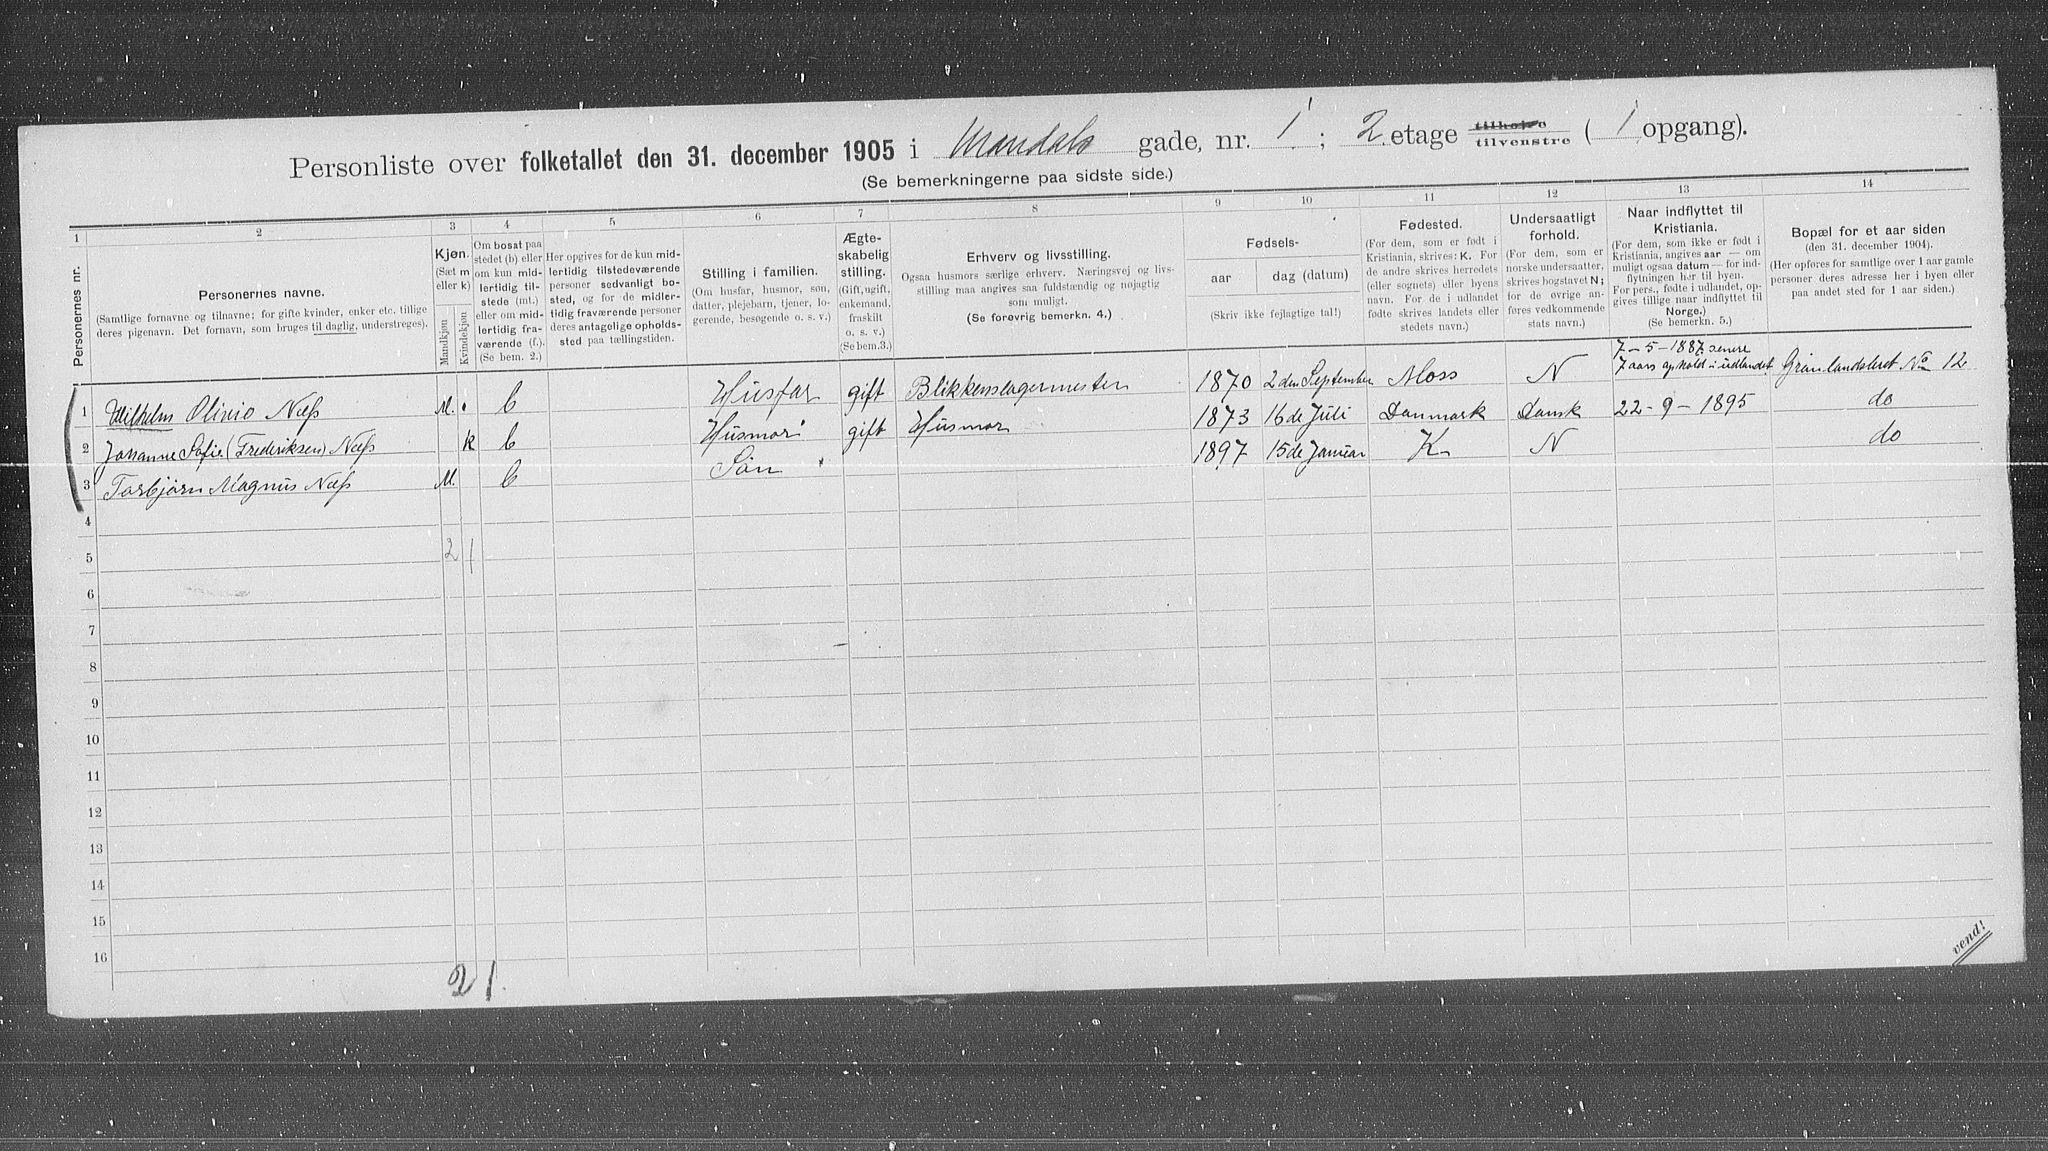 Personliste over folketallet den 31. december 1905 i Mandals gade, nr. 1 ; 2. etage tilhøjre tilvenstre ( 1 opgang).
(Se bemerkningerne paa sidste side.)
1 2 3 4 5 6 7 8 9 10 11 12 13 14
Personernes nr.
Personernes navne.
(Samtlige fornavne og tilnavne; for gifte kvinder, enker etc. tillige
deres pigenavn. Det fornavn, som bruges til daglig, understreges).
Kjøn.
(Sæt m
eller k)
Mandkjøn
Kvindekjøn
Om bosat paa
stedet (b) eller
om kun mid-
lertidig til-
stede (mt.)
eller om mid-
lertidig fra-
værende (f.).
(Se bem. 2.)
Her opgives for de kun mid-
lertidig tilstedeværende
personer sedvanligt bo-
sted, og for de midler-
tidig fraværende personer
deres antagelige opholds-
sted paa tællingstiden.
Stilling i familien.
(Om husfar, husmor, søn,
datter, plejebarn, tjener, lo-
gerende, besøgende o. s. v.)
Ægte-
skabelig
stilling.
(Gift, ugift,
enkemand,
fraskilt
o. s. v.)
(Se bem.3.)
Erhverv og livsstilling.
Ogsaa husmors særlige erhverv. Næringsvej og livs-
stilling maa angives saa fuldstændig og nøjagtig
som muligt.
(Se forøvrig bemerkn. 4.)
Fødsels-
aar
dag (datum)
(Skriv ikke fejlagtige tal!)
Fødested.
(For dem, som er født i
Kristiania, skrives: K. For
de andre skrives herredets
(eller sognets) eller byens
navn. For de i udlandet
fødte skrives landets eller
stedets navn.)
Undersaatligt
forhold.
(For dem, som er
norske undersaatter,
skrives bogstavet N;
for de øvrige an-
føres vedkommende
stats navn.)
Naar indflyttet til
Kristiania.
(For dem, som ikke er født i
Kristiania, angives aar — om
muligt ogsaa datum — for ind-
flytningen her til byen.
For pers., fødte i udlandet, op-
gives tillige naar indflyttet til
Norge.)
(Se bemerkn. 5.)
Bopæl for et aar siden
(den 31. december 1904).
(Her opføres for samtlige over 1 aar gamle
personer deres adresse her i byen eller
paa andet sted for 1 aar siden.)
1 Wilhelm Olivio Næss M. b Husfar gift Blikkenslagermester 1870 2den September Moss N 7-5-1887. senere 7 aars ophold i udlandet Grønlandsleret No 12
2 Johanne Sofie (Frederiksen) Næss k b Husmor gift Husmor 1873 16de Juli Danmark Dansk 22-9-1895 do
3 Torbjørn Magnus Næss M. b Søn 1897 15de Januar K N do
4
5 2 1
6
7
8
9
10
11
12
13
14
15
16
2 1.
vend!